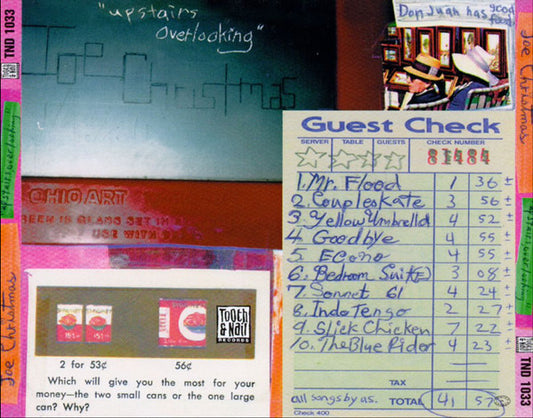 "upstairs
overlooking"
Joe Christmas
OHIO ART
USE WITH
Don Juan has good
food
Guest Check
SERVER TABLE GUESTS CHECK NUMBER
81484
1. Mr. Flood 1 36 ±
2. Coupleskate 3 56 ±
3. Yellow Umbrella 4 52 ±
4. Goodbye 4 55 ±
5. Econo 4 55 ±
6. Bedroom Suit(E) 3 08 ±
7. Sonnet 61 4 24 ±
8. Indo Tengo 2 27 ±
9. Slick Chicken 7 22 ±
10. The Blue Rider 4 23 ±
TAX
all songs by us. TOTAL 41 57
Check 400
2 for 53¢ 56¢
Tooth
& Nail
RECORDS
Which will give you the most for your
money—the two small cans or the one large
can? Why?
TND 1033
"upstairs, overlooking"
Joe Christmas
Joe Christmas
"upstairs overlooking"
TND 1033